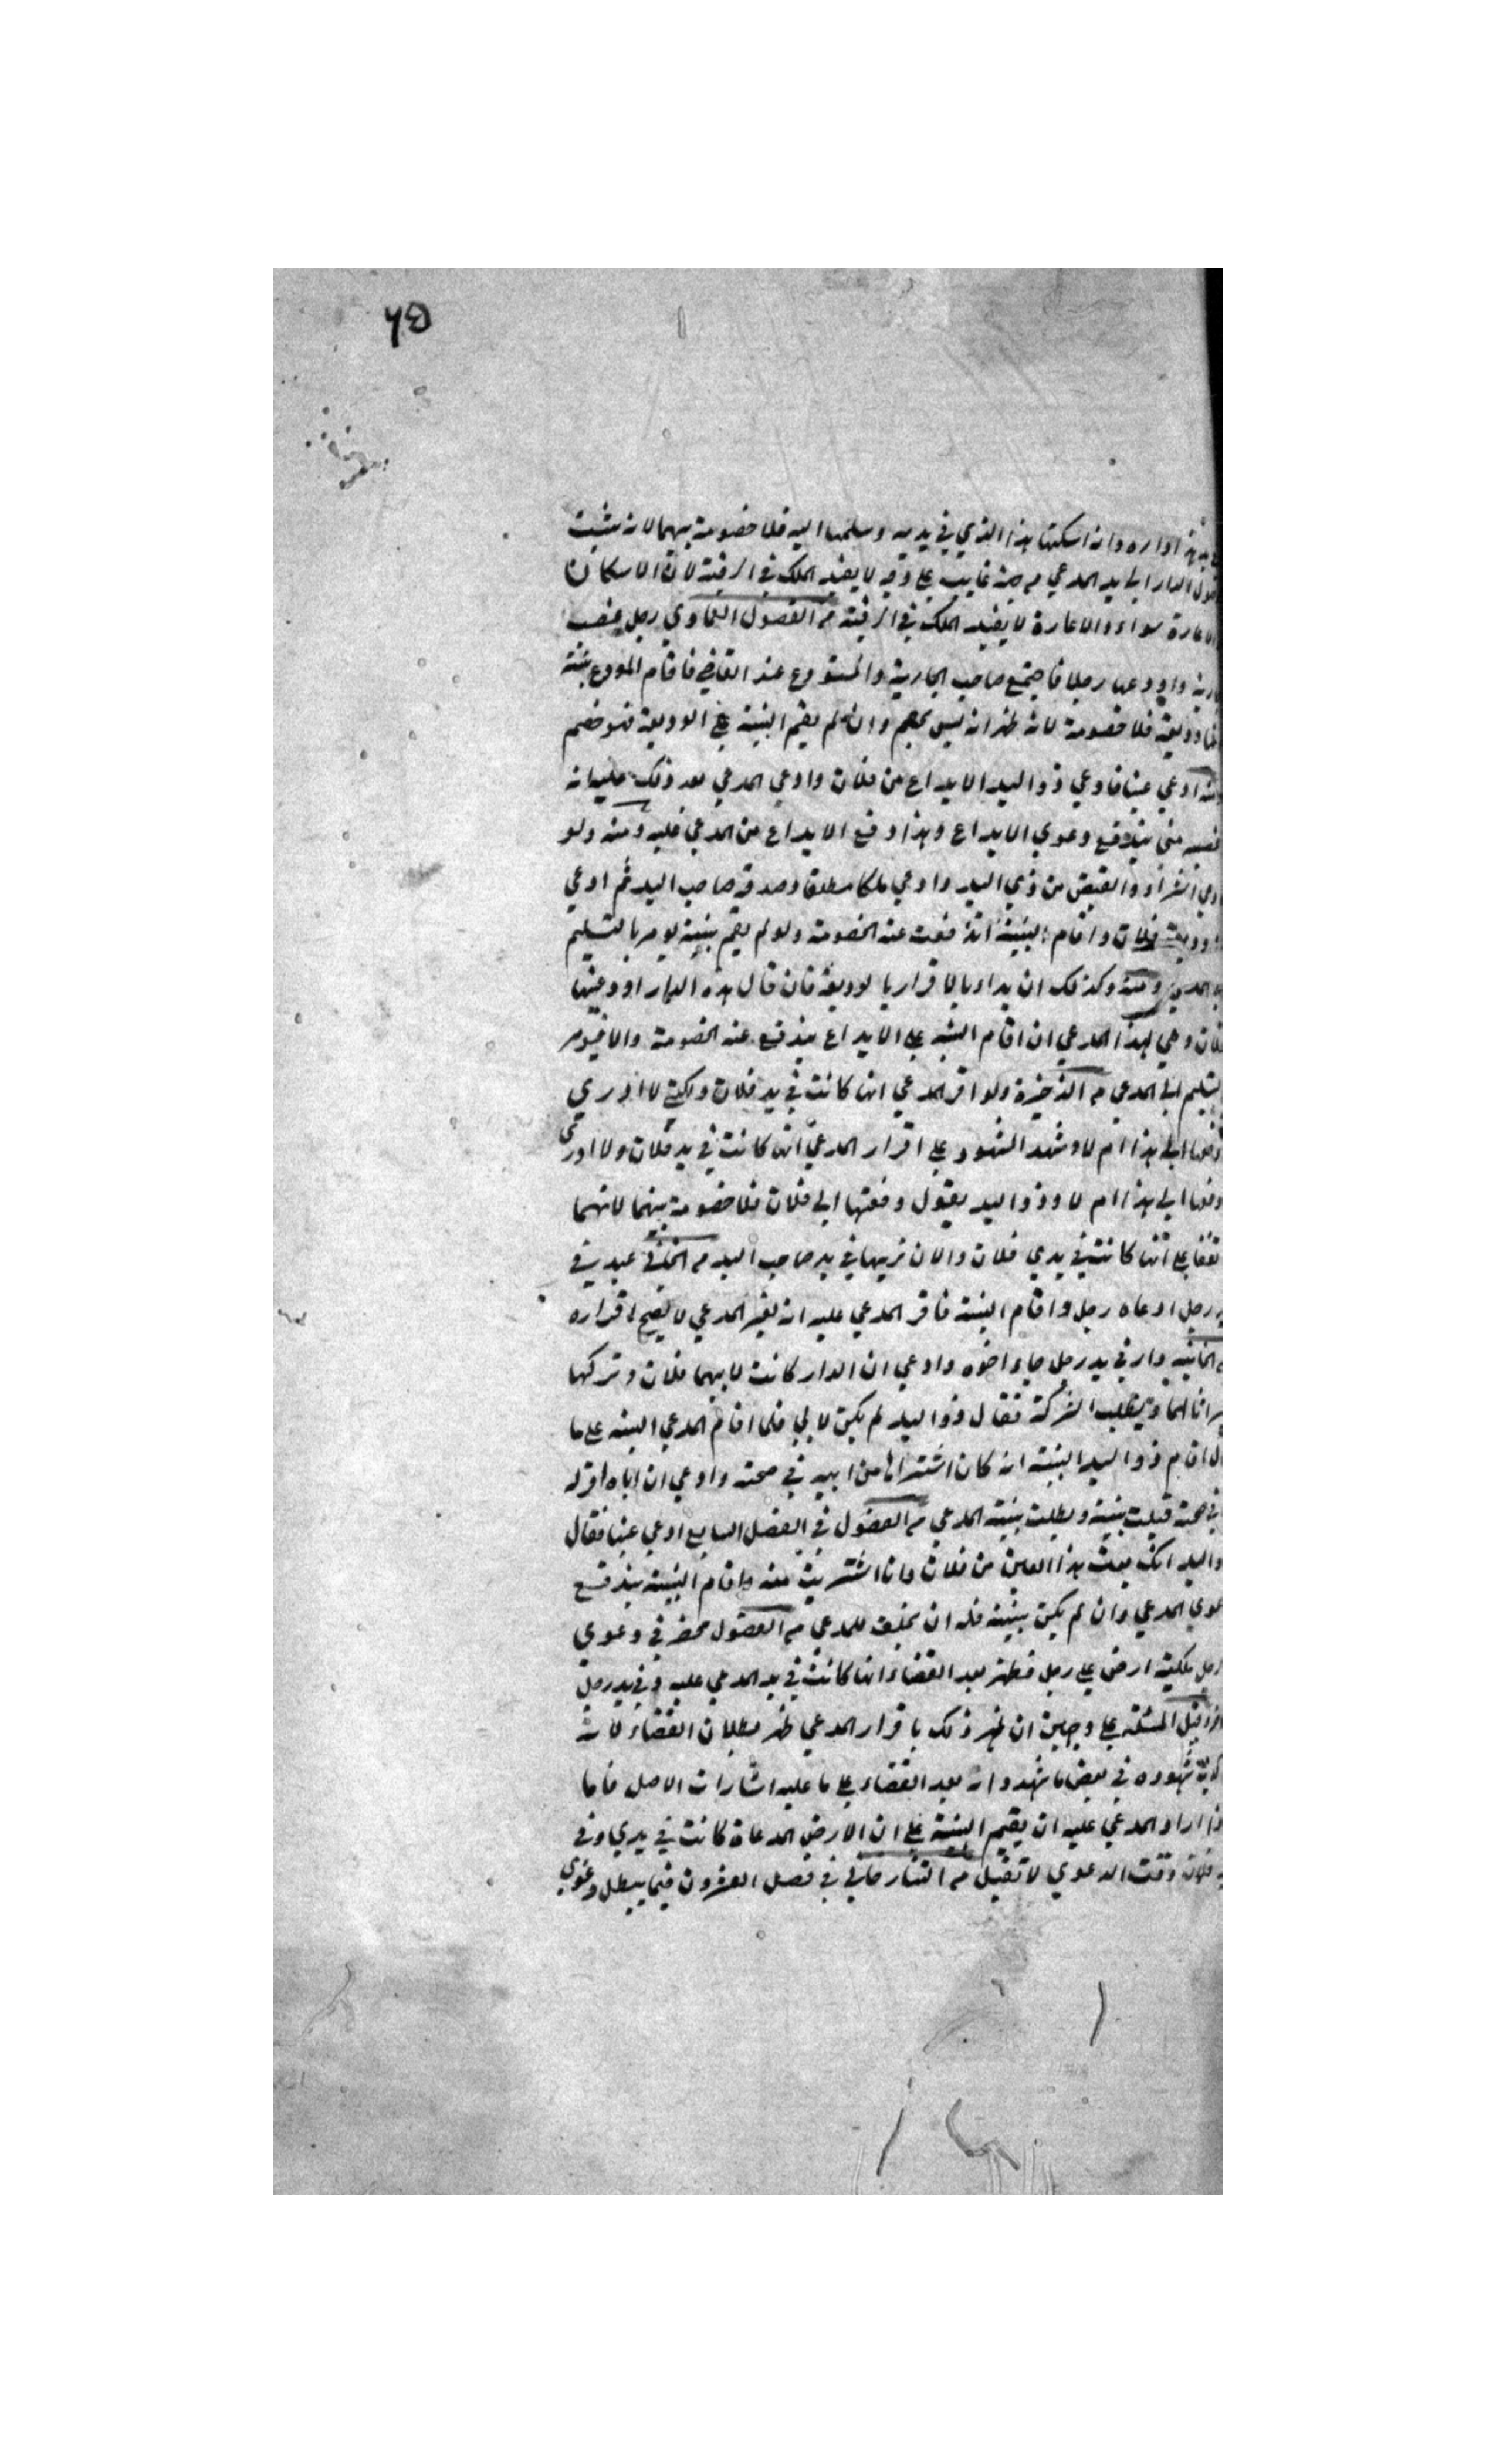 ٦٥
هذا داره وانه اسكنها هذا الذي في يديه وسلمها اليه فلا خصومة بينهما لانه يثبت
الدار الى يد المدعي من جهة غايب على وجه لا يفيد الملك في الرقبة لان الاسكان
والاعارة سواء والاعارة لا يفيد الملك في الرقبة من الفصول العمادي رجل غصب
جارية واودعها رجلا فاجتمع صاحب الجارية والمستودع عند القاضي فاقام المودع بينة
انها وديعة فلا خصومة لانه ظهر انه ليس بخصم وان لم يقم البينة على الوديعة فهو خصم
ادعي عينا فادعي ذو اليد الايداع من فلان وادعي المدعي بعد ذلك عليه انه
غصبه مني يندفع دعوي الايداع وهذا دفع الايداع من المدعي قلبه ومنه ولو
ادعي الشراء والقبض من ذي اليد وادعي ملكا مطلقا وصدقه صاحب اليد ثم ادعي
وديعة فلان واقام البينة اندفعت عنه الخصومة ولو لم يقم بينة يومر بالتسليم
المدعي ومنه وكذلك ان بدا وبالاقرار بالوديعة فان قال هذه الدار اودعنيها
فلان وهي لهذا المدعي ان اقام البينة على الايداع يندفع عنه الخصومة والا فيومر
بتسليم الى المدعي من الذخيرة ولو اقر المدعي انها كانت في يد فلان ولكن لا ادري
دفعها الى هذا ام لا وشهد الشهود على اقرار المدعي انها كانت في يد فلان ولا ادري
دفعها الى هذا ام لا وذو اليد يقول دفعتها الى فلان فلا خصومة بينهما لانهما
اتفقا على انها كانت في يدي فلان والان نريها في يد صاحب اليد من عبد في
يد رجل ادعاه رجل واقام البينة فاقر المدعي عليه انه لغير المدعي لا يصح اقراره
من الخانية دار في يد رجل جاء اخوه وادعي ان الدار كانت لابيهما فلان وتركها
ميراثا لهما ويطلب الشركة فقال ذو اليد لم يكن لابي فلما اقام المدعي البينة على ما
قال اقام ذو اليد البينة انه كان اشتراها من ابيه في صحته وادعي ان اباه اقر له
في صحته قبلت بينته وبطلت بينة المدعي من الفصول في الفصل السابع ادعي عينا فقال
ذو اليد انك بعت هذا العين من فلان وانا اشتريت منه واقام البينة يندفع
دعوي المدعي وان لم يكن بينة فله ان يحلف للمدعي من الفصول محضر في دعوي
رجل ملكية ارض على رجل فظهر بعد القضاء انها كانت في يد المدعي عليه وفي يد رجل
اخر قيل المسئلة على وجهين ان ظهر ذلك باقرار المدعي ظهر بطلان القضاء لانه
شهوده في بعض ما شهدوا به بعد القضاء على ما عليه اشارات الاصل فاما
اذا اراد المدعي عليه ان يقيم البينة على ان الارض المدعاة كانت في يدي وفي
يد فلان وقت الدعوي لا تقبل من التتارخاني في فصل العشرون فيما يبطل دعوي